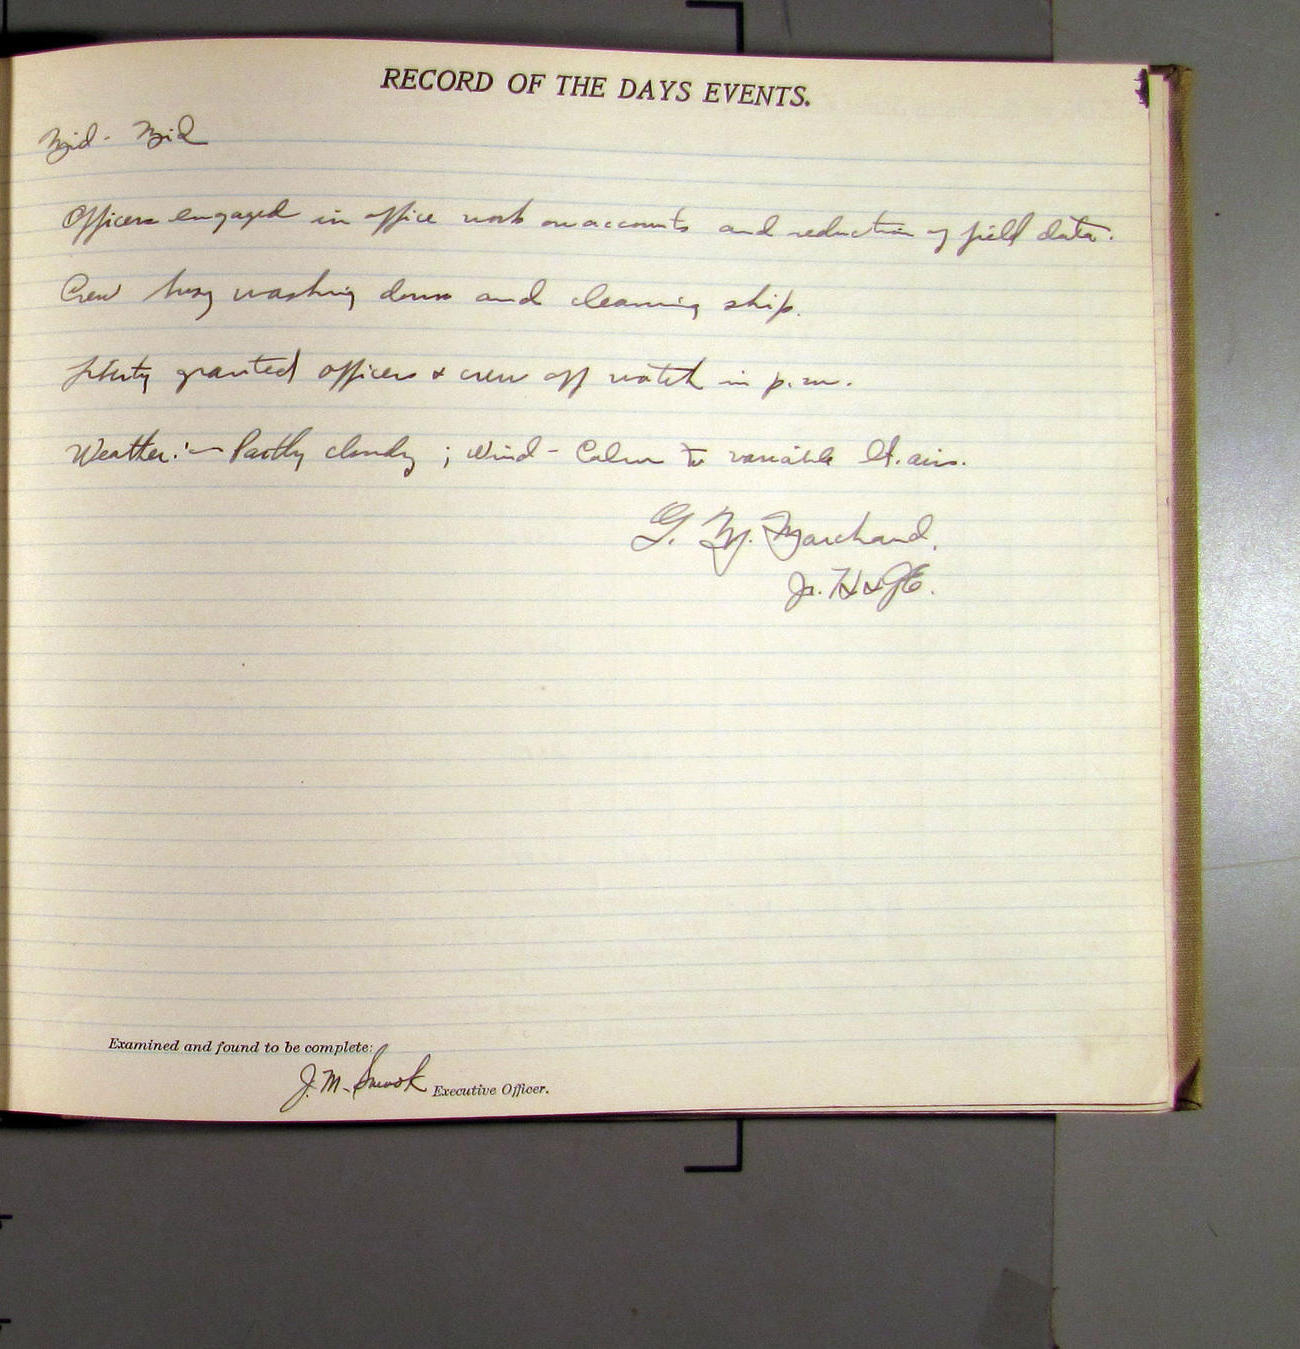 RECORD OF THE DAYS EVENTS.
Mid - Mid
Officers engaged in office work on accounts and reduction of field data.
Crew busy washing down and cleaning ship.
Liberty granted officers & crew off watch in p.m.
Weather:- Partly cloudy ; Wind - Calm to variable lt. airs.
G. M. Marchand.
Jr. H & G E.
Examined and found to be complete:
J. M. Smook Executive Officer.